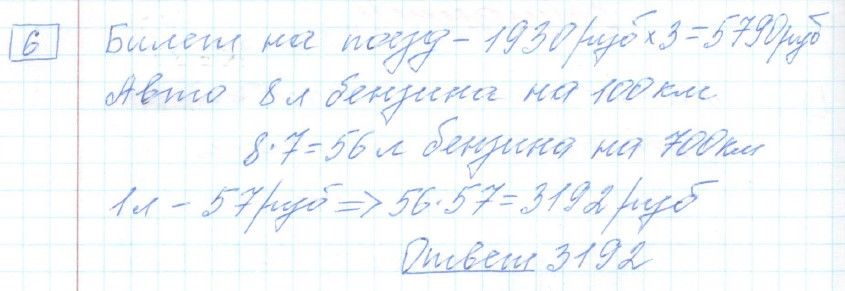 6 Билет на поезд - 1930 руб × 3 = 5790 руб
Авто 8 л бензина на 100 км
8 · 7 = 56 л бензина на 700 км
1 л - 57 руб => 56 · 57 = 3192 руб
Ответ 3192